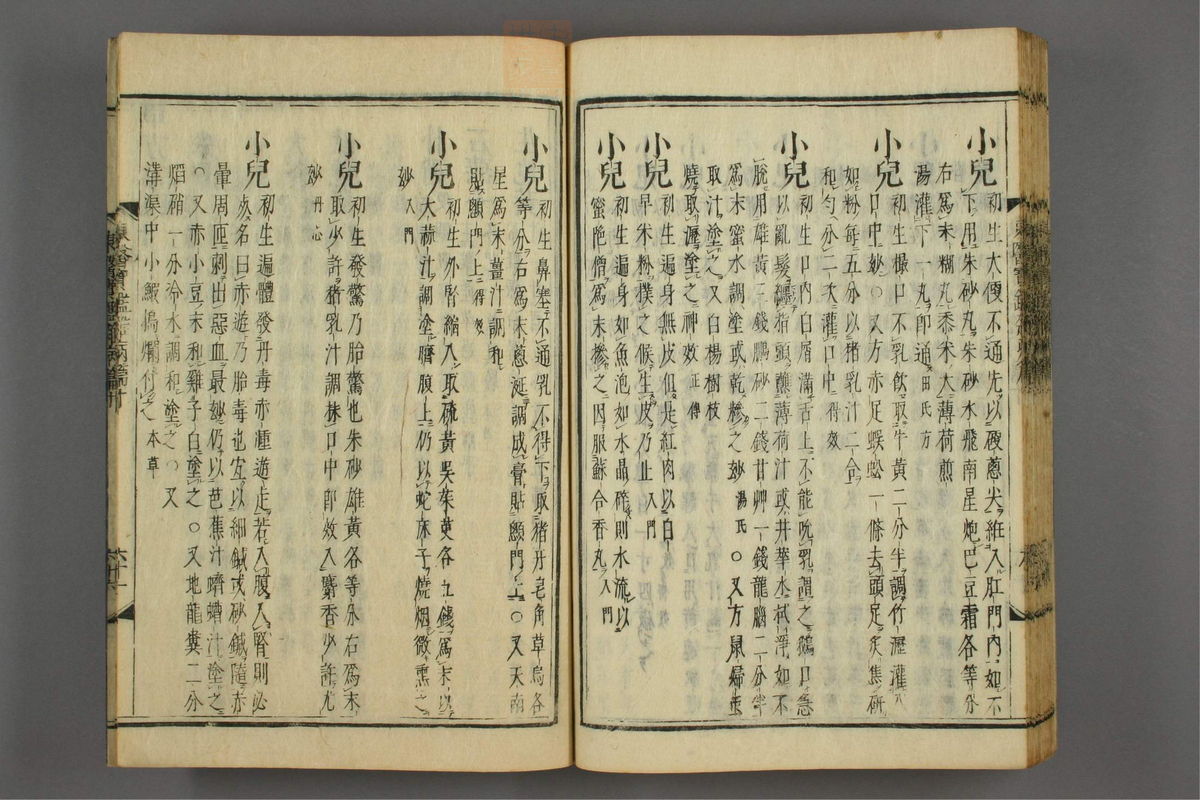 小兒 初生大便不通先以硬蔥尖絍入肛門內如不
下用朱砂丸朱砂水飛南星炮巴豆霜各等分
右爲末糊丸黍米大薄荷煎
湯灌下一丸卽通 田氏方
小兒 初生撮口不乳飲取牛黃二分半調竹瀝灌入
口中妙○又方赤足蜈蚣一條去頭足炙焦硏
如粉每五分以猪乳汁二合
和勻分二次灌口中 得效
小兒 初生口內白屑滿舌上不能吮乳謂之鵝口急
以亂髮纏指頭蘸薄荷汁或井華水拭淨如不
脫用雄黃三錢鵬砂二錢甘艸一錢龍腦二分半
爲末蜜水調塗或乾糝之妙 湯氏 ○又方鼠婦
取汁塗之又白楊樹枝
燒取瀝塗之神效 正傳
小兒 初生遍身無皮但是紅肉以白
早米粉撲之候生皮乃止 入門
小兒 初生遍身如魚泡如水晶碎則水流以
蜜陁僧爲末糝之因服蘇合香丸 入門
小兒 初生鼻塞不通乳不得下取猪牙皂角草烏各
等分右爲末蔥涎調成膏貼顖門上○又天南
星爲末薑汁調和
貼顖門上 得效
小兒 初生外腎縮入取硫黃吳茱萸各五錢爲末以
大蒜汁調塗臍腹上仍以蛇床子燒烟微熏之
妙 入門
小兒 初生發驚乃胎驚也朱砂雄黃各等分右爲末
取少許猪乳汁調抹口中卽效入麝香少許尤
妙 丹心
小兒 初生遍體發丹毒赤腫遊走若入腹入腎則必
死名曰赤遊乃胎毒也宜以細鍼或砂鍼隨赤
暈周匝刺出惡血最妙仍以芭蕉汁蠐螬汁塗之
○又赤小豆末和雞子白塗之○又地龍糞二分
焰硝一分冷水調和塗之○又
溝渠中小鰕搗爛付之 本草